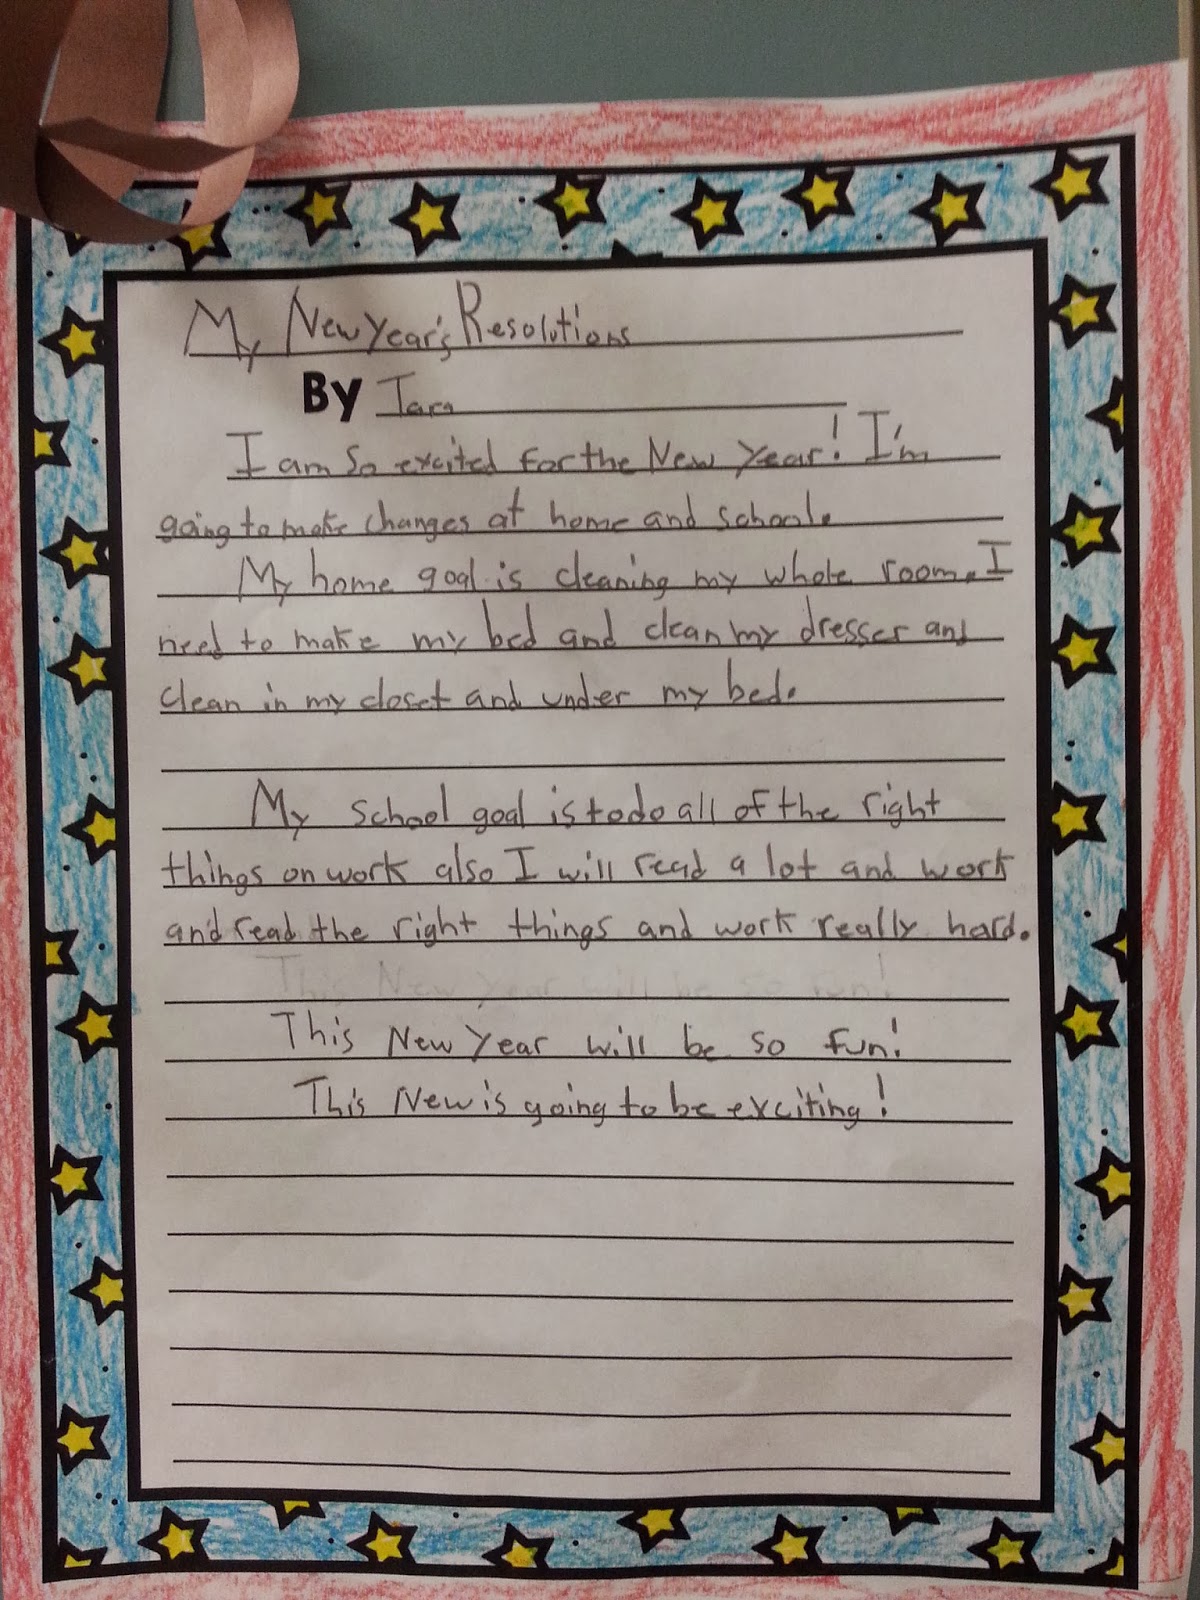 My New Year's Resolutions
By Tara
I am so excited for the New Year! I'm
going to make changes at home and school.
My home goal is cleaning my whole room. I
need to make my bed and clean my dresser and
clean in my closet and under my bed.
My school goal is to do all of the right
things on work also I will read a lot and work
and read the right things and work really hard.
This New Year will be so fun!
This New Year will be so fun!
This New is going to be exciting!